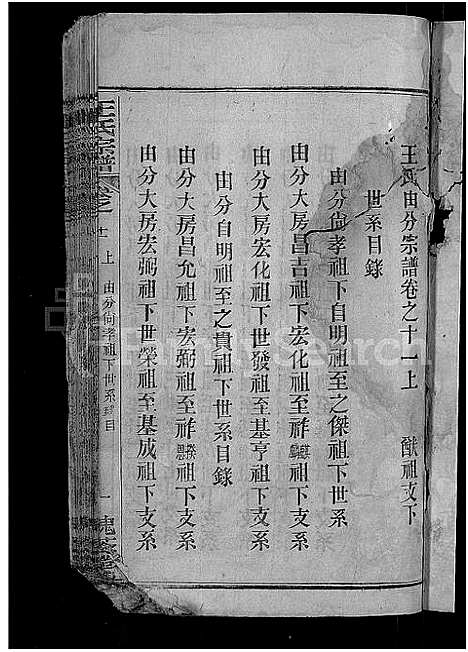 王氏由分宗譜卷之十一上 猷祖支下
世系目錄
由分尙孝祖下自明祖至之傑祖下世系
由分大房昌吉祖下宏化祖至祚
由分大房宏化祖下世發祖至基亨祖下支系
由分自明祖至之貴祖下世系目錄
由分大房昌允祖下宏弼祖至祚
祖下支系
由分大房宏弼祖下世榮祖至基成祖下支系
王氏宗譜 卷之十一上 由分尙孝祖下世系 目 一 槐